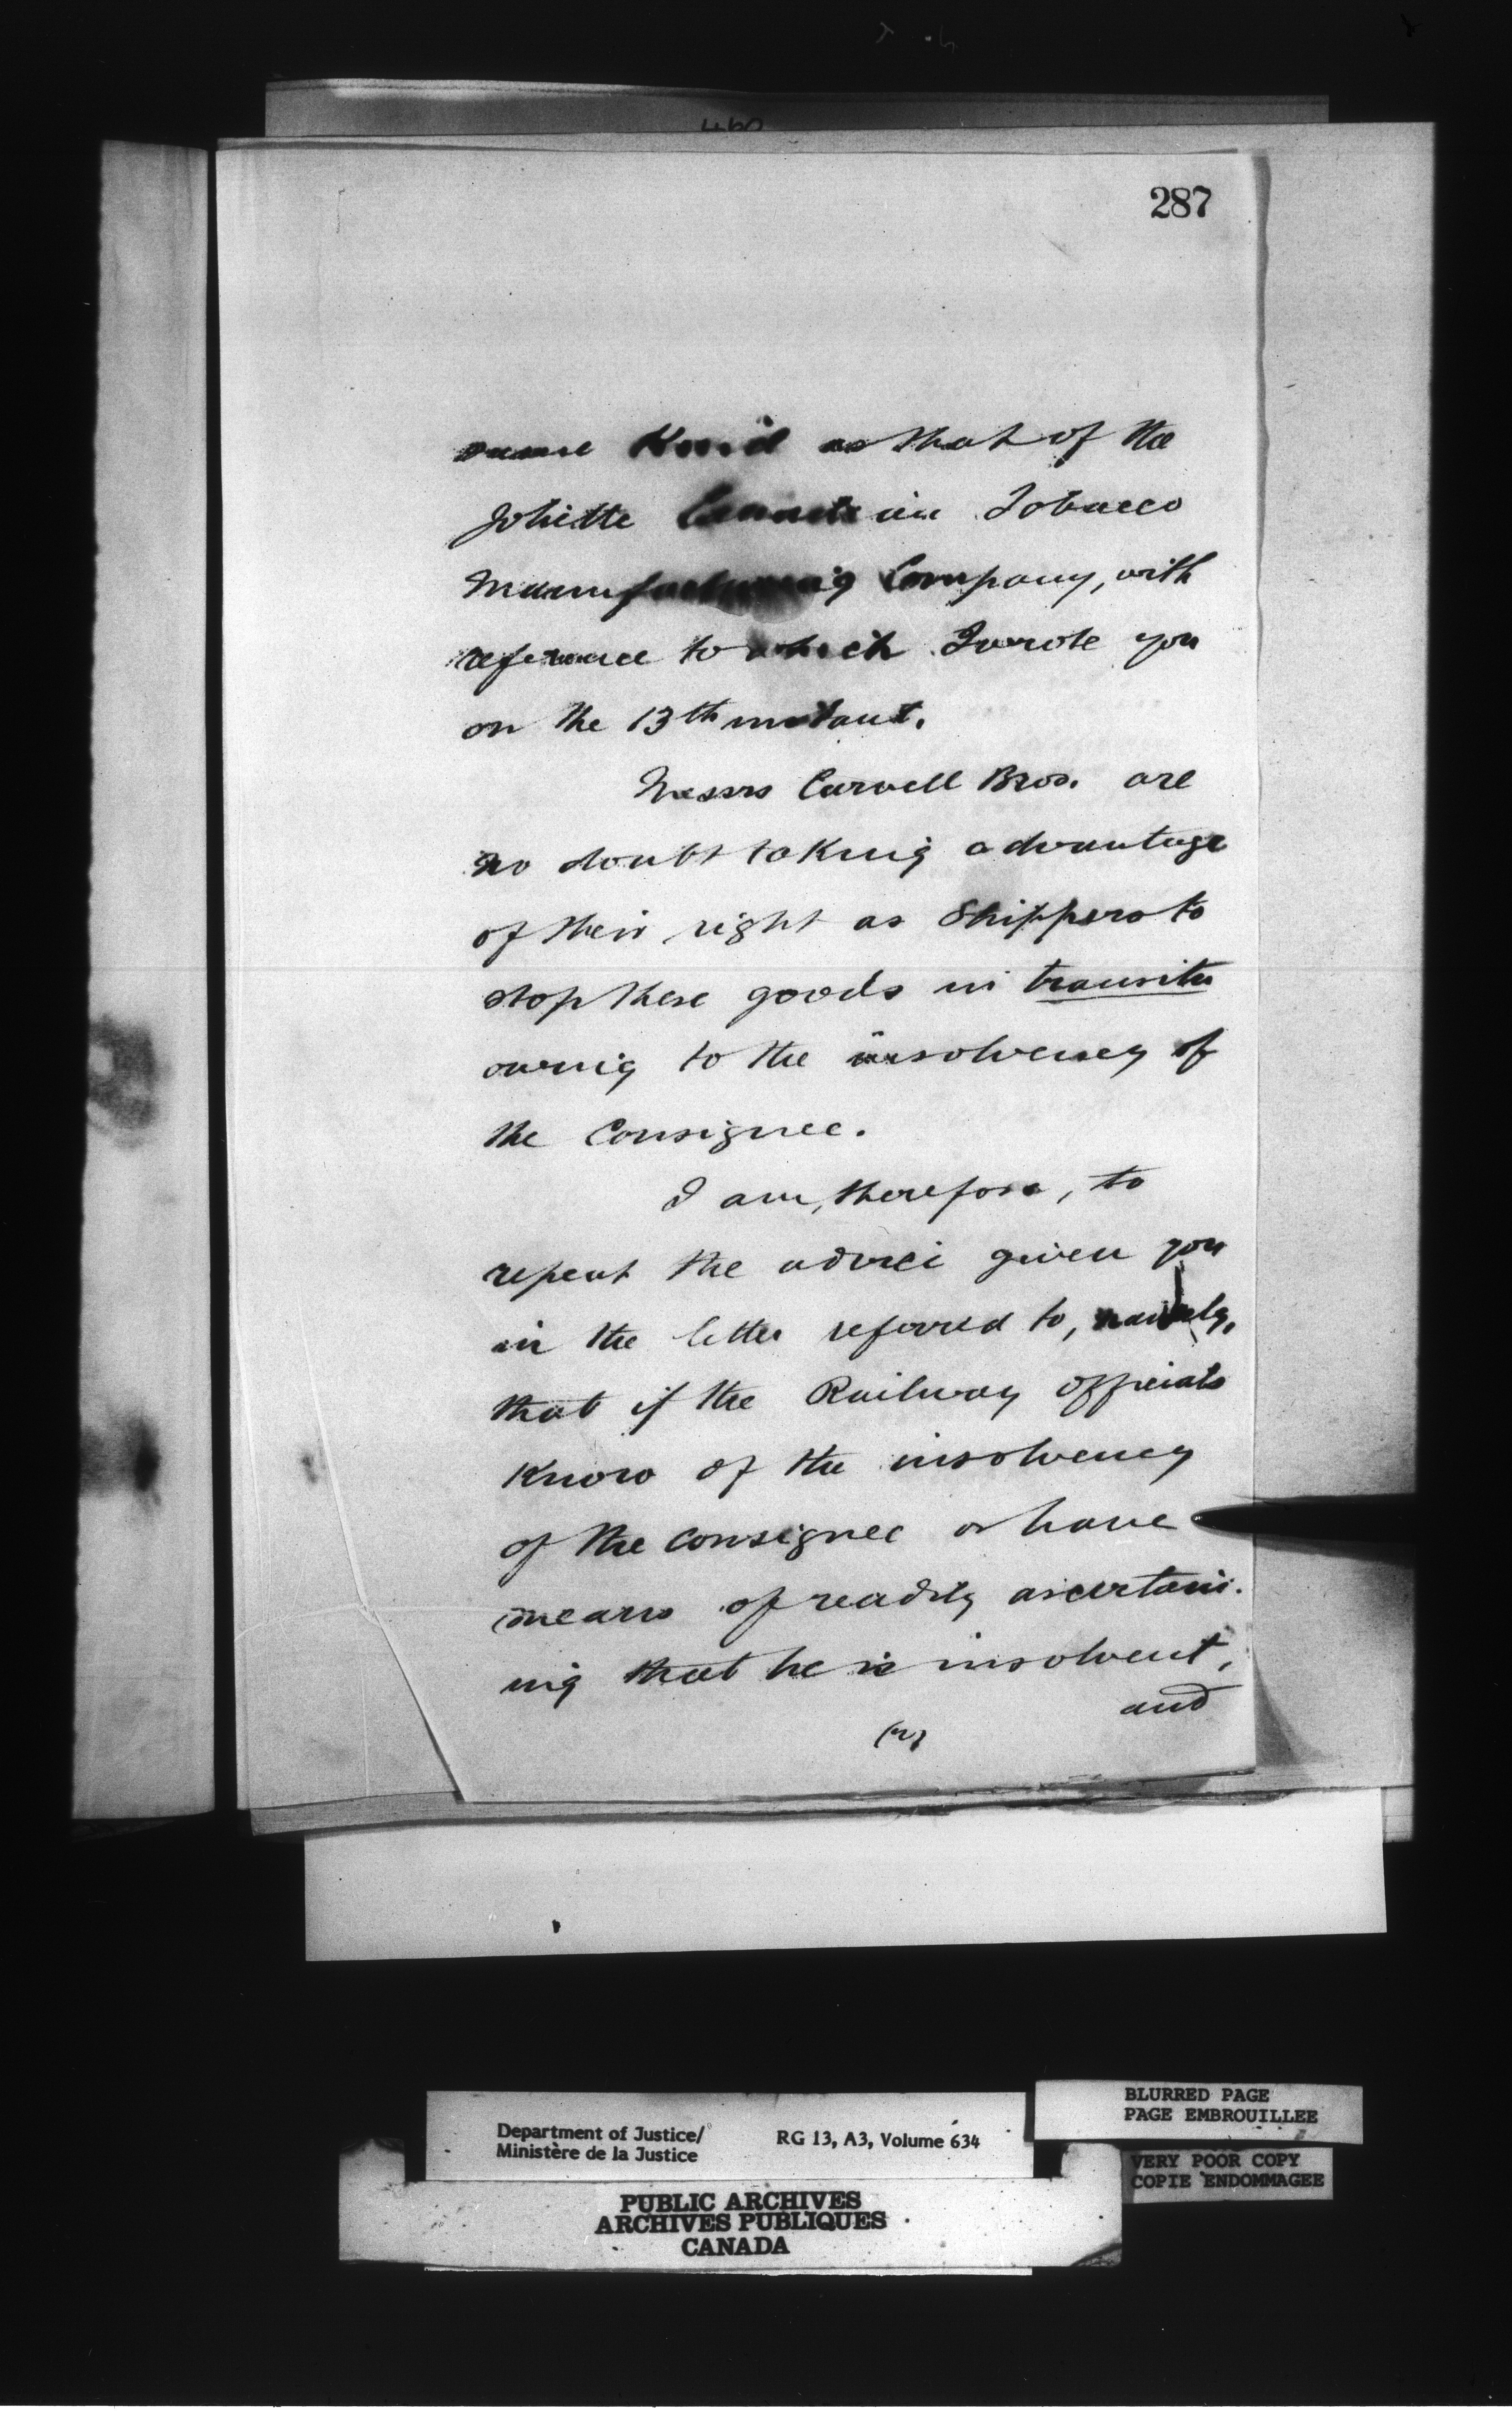 287
same Kind as that of the
Joliette Canadian Tobacco
Manufacturing Company, with
reference to which I wrote you
on the 13th instant.
Messrs Carvell Bros. are
no doubt taking advantage
of their right as Shippers to
stop these goods in transitu
owing to the insolvency of
the Consignee.
I am, therefore, to
repeat the advice given you
in the letter referred to, namely,
that if the Railway Officials
Know of the insolvency
of the Consignee or have
means of readily ascertain-
ing that he is insolvent,
and
Department of Justice/
Ministère de la Justice
RG 13, A3, Volume 634
BLURRED PAGE
PAGE EMBROUILLEE
VERY POOR COPY
COPIE ENDOMMAGEE
PUBLIC ARCHIVES
ARCHIVES PUBLIQUES
CANADA